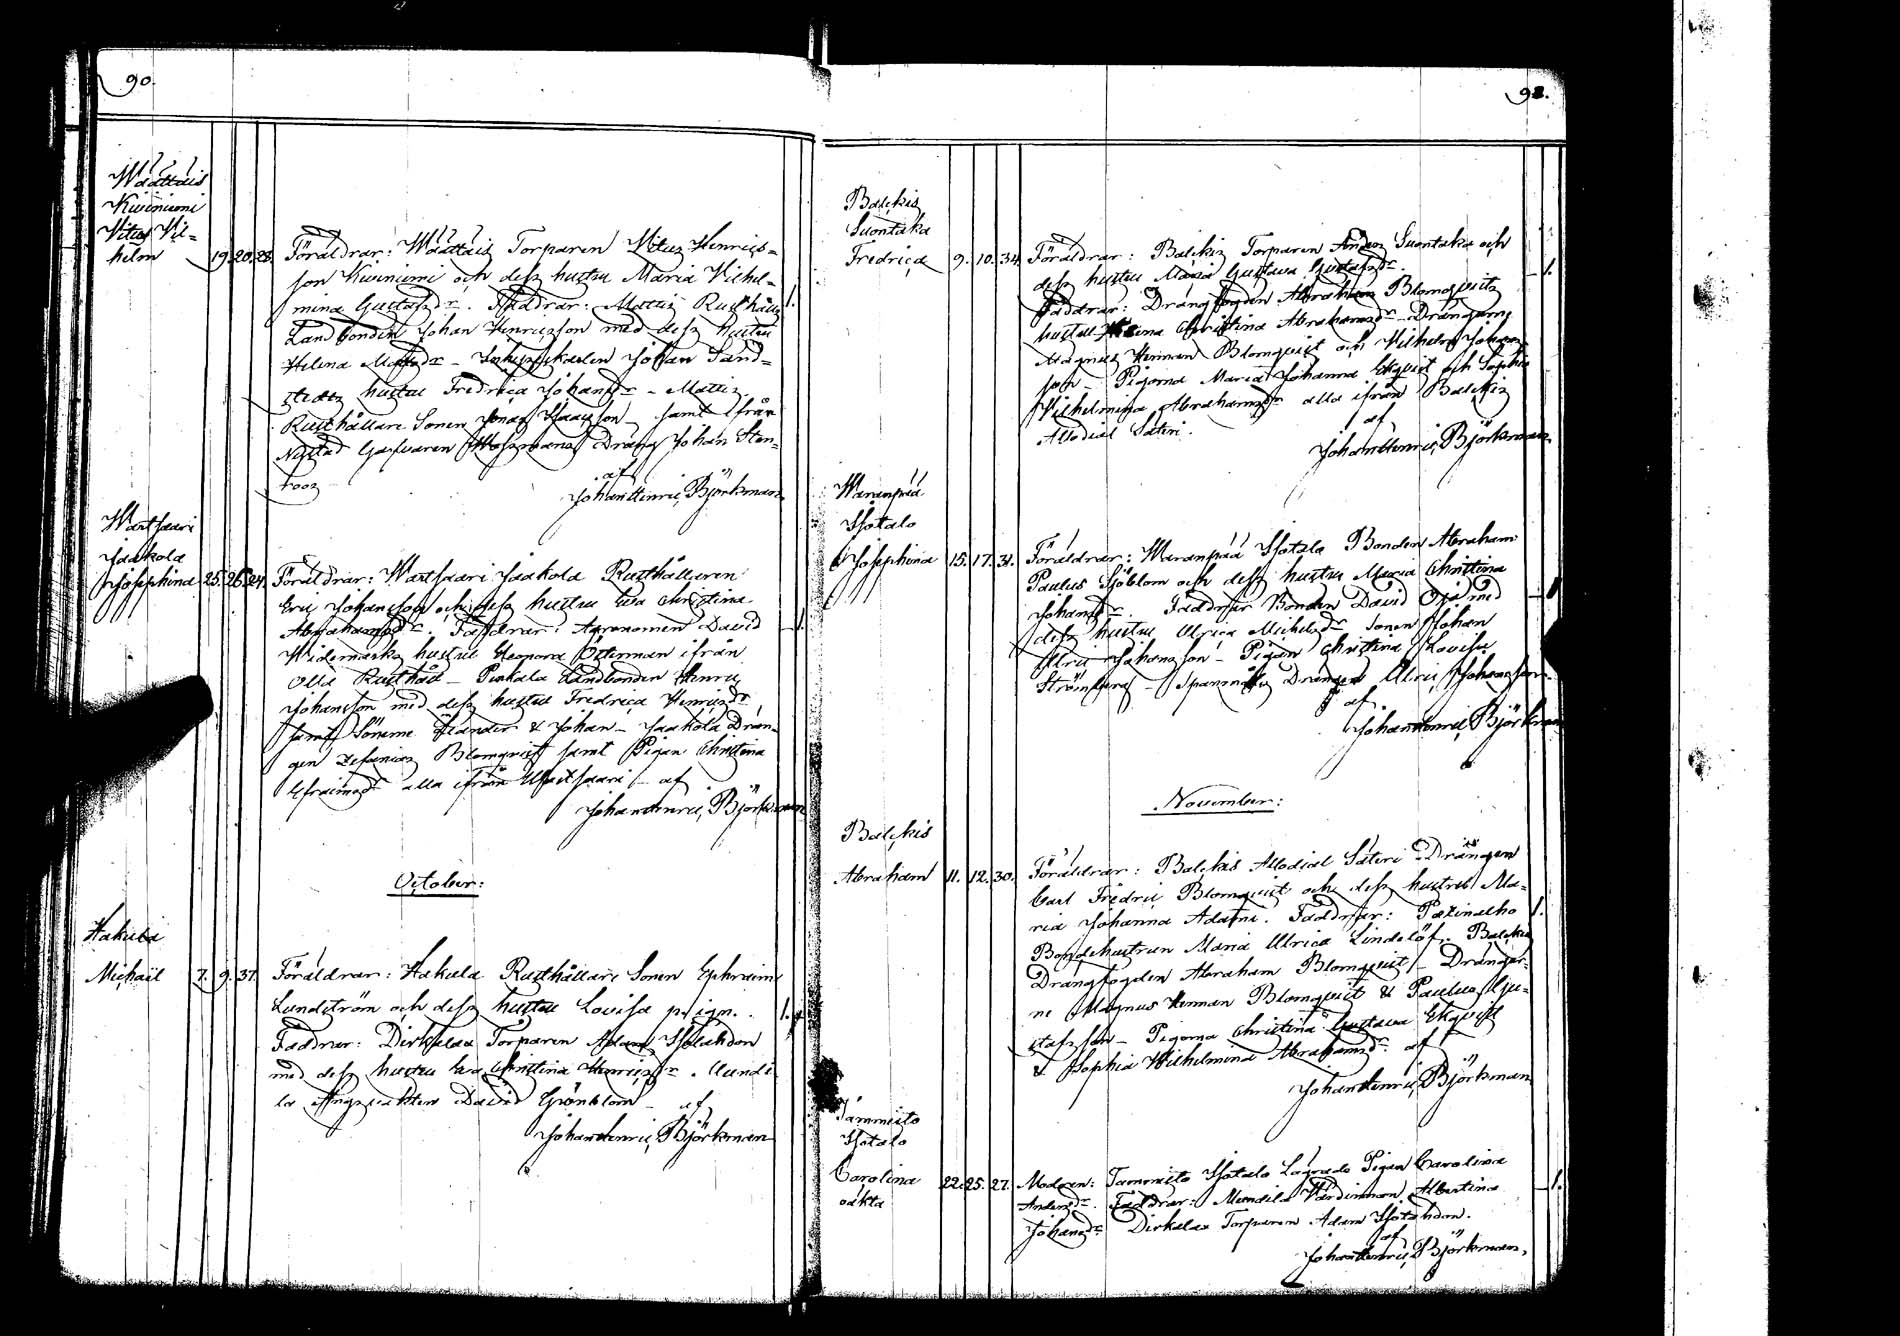 90.
Wäättäis
Kiviniemi
Vitus Vil=
helm 19. 20. 28. Föräldrar: Wäättäis Torparen Vitus Henrics=
son Kiviniemi och dess hustru Maria Vilhel=
mina Gustafsdr. Faddrar: Mattis Rusthålls 1.
Landbonden Johan Henricsson med dess hustru
Helena Matsdr - Johan Sand=
hustru Fredrica Johansdr - Mattis
Rusthållare Sonen Jonas Isaacsson - samt ifrån
Nystad Garfvaren Dräng Johan Sten=
roos af
Johan Henric Björkman
Wartsaari
Jaakola
Josephina 25. 26. 24. Föräldrar: Wartsaari Jaakola Rusthållaren
Eric Johansson och dess hustru Eva Christina
Abrahamsdr. Faddrar: Agronomen David 1.
Widemarks hustru Eleonora Österman ifrån
Olli Rusthåll - Pirkala Landbonden Henric
Johansson med dess hustru Fredrica Henricsdr
samt Sönerne & Johan - Jaakola Drän=
gen Zefanias Blomqvist samt Pigan Christina
Efraimsdr alla ifrån Wartsaari - af
Johan Henric Björkman
October:
Hakula
Michaël 7. 9. 37. Föräldrar: Hakula Rusthållare Sonen Ephraim
Lundström och dess hustru Lovisa p. ign. 1.
Faddrar: Dirkalax Torparen Adam Isotahdon
med dess hustru Eva Christina Henricsdr. Mundi=
la David Grönblom - af
Johan Henric Björkman
Balckis
Suontaka
Fredrica 9. 10. 34. Föräldrar: Balckis Torparen Anders Suontaka och
dess hustru Maria Gustava Gustafsdr. 1.
Faddrar: Drängfogden Abraham Blomqvists
hustru Christina Abrahamsdr - Drängarne
Magnus Herman Blomqvist och Vilhelm Johans=
son - Pigorna Maria Johanna Ekqvist och Sophia
Vilhelmina Abrahamsdr alla ifrån Balckis
Allodial Säteri. af
Johan Henric Björkman
Waranpää
Isotalo
Josephina 15. 17. 31. Föräldrar: Waranpää Isotalo Bonden Abraham
Paulus Sjöblom och dess hustru Maria Christina
Johansdr. Faddrar Bonden David Oja med
dess hustru Ulrica Michelsdr Sonen Johan
Ulric Johansson - Pigan Christina Lovisa
Strömberg - Drängen Ulric Johansson.
af
Johan Henric Björkman
November:
Balckis
Abraham 11. 12. 30. Föräldrar: Balckis Allodial Säteri Drängen
Carl Fredric Blomqvist och dess hustru Ma=
ria Johanna Adami. Faddrar: 1.
Bondehustrun Maria Ulrica Lindelöf. Balckis
Drängfogden Abraham Blomqvist - Drängar=
ne Magnus Herman Blomqvist & Paulus Gu=
stafsson - Pigorna Christina Gustava Ekqvist
& Sophia Wilhelmina Abrahamsdr. af
Johan Henric Björkman
Tammisto
Isotalo
Carolina
oäkta 22. 25. 27. Modren: Tammisto Isotalo Pigan Carolina
Andersdr. Faddrar: Mundila Albertina 1.
Johansdr Dirkalax Torparen Adam Isotahdon.
af
Johan Henric Björkman.